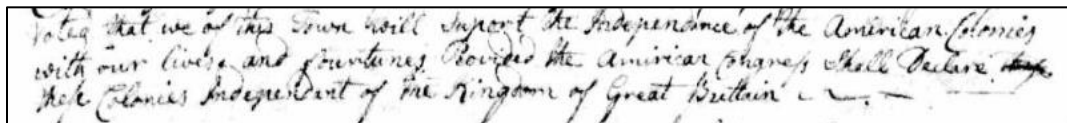 Voted that we of this Town will Suport the Independance of the American Colonies
with our lives and fourtunes Provided the Amirican Congress Shall Declare
these Colonies Independant of the Kingdom of Great Brittain